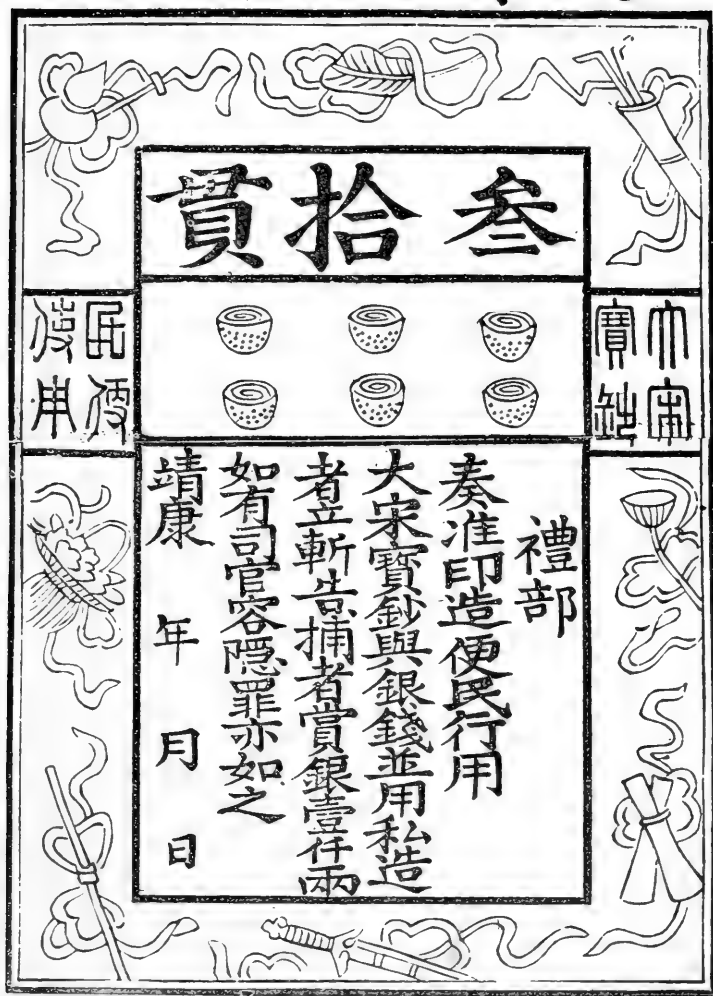 叁拾貫
大宋
寶鈔
民便
使用
禮部
奏准印造便民行用
大宋寶鈔與銀錢並用私造
者立斬告捕者賞銀壹仟兩
如有司官容隱罪亦如之
靖康 年 月 日